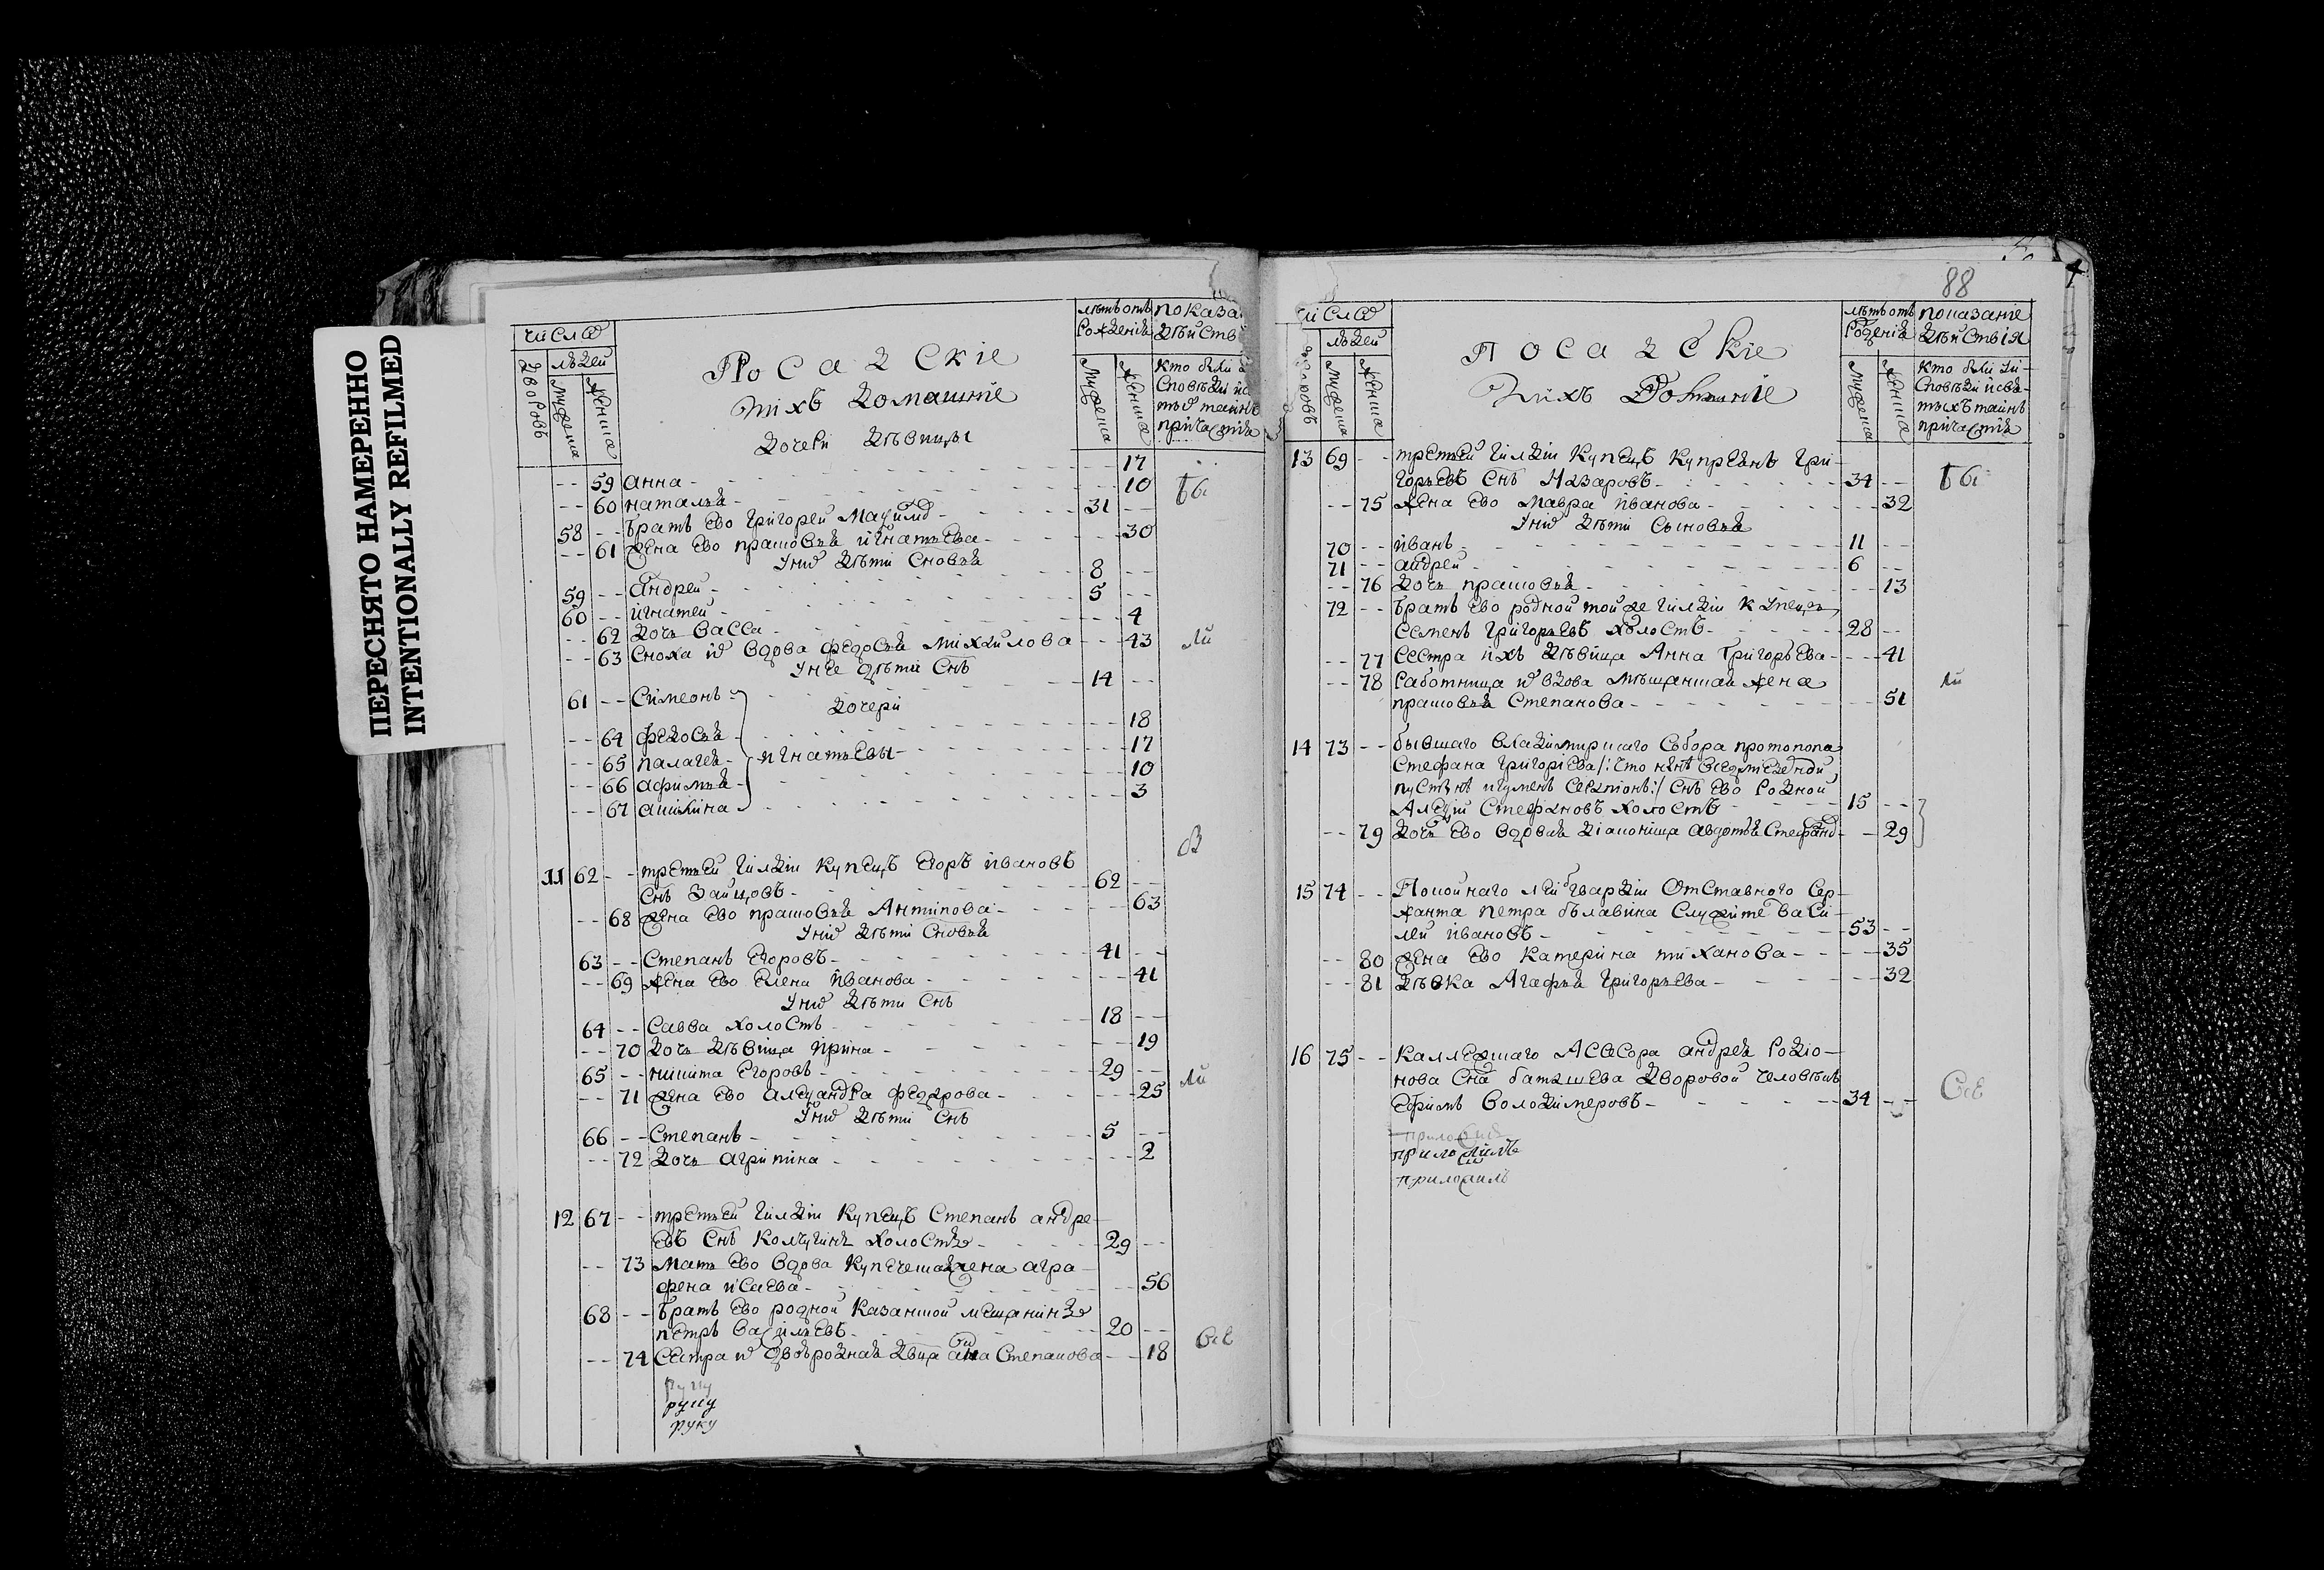 ПЕРЕСНЯТО НАМЕРЕННО
INTENTIONALLY REFILMED
число
дворовъ
людей
мужеска
женска
Посадскіе
и ихъ домашніе
дочери девицы
летъ отъ
рожденія
мужеска
женска
показа
действ
кто были
59 анна 17
60 наталья 10
58 братъ ево григорей 31
61 жена ево прасковья игнатьева 30
у нихъ дети сновья
59 андрей 8
60 игнатей 5
62 дочь васса 4
63 сноха их вдова федосья михайлова 43
у нее дети снъ
61 симеонъ 14
дочери
64 федосья 18
65 палагея игнатьевы 17
66 афимья 10
67 акилина 3
11 62 третьей гилдіи купецъ егоръ ивановъ
снъ зайцовъ 62
68 жена ево прасковья антипова 63
у них дети сновья
63 степанъ егоровъ 41
69 жена ево елена иванова 41
у них дети снъ
64 савва холостъ 18
70 дочь девица ирина 19
65 никита егоровъ 29
71 жена ево александра федорова 25
у них дети снъ
66 степанъ 5
72 дочь агрипина 2
12 67 третьей гилдіи купецъ степанъ андре
евъ снъ холостъ 29
73 мать ево вдова купеческая жена агра
фена исаева 56
68 братъ ево родной казанской мещанинъ
петръ васильевъ 20
74 сестра их двоюродная двца анна степанова 18
руку
руку
руку
88
число
дворовъ
людей
мужеска
женска
Посадскіе
и ихъ домашніе
летъ отъ
рожденія
мужеска
женска
показаніе
действія
кто были у и
споведи и свя
тыхъ таинъ
причастія
13 69 третьей гилдіи купецъ купреянъ гри
горьевъ снъ назаровъ 34
75 жена ево мавра иванова 32
у них дети сыновья
70 иванъ 11
71 андрей 6
76 дочь прасковья 13
72 братъ ево родной той же гилдіи купецъ
семенъ григорьевъ холостъ 28
77 сестра ихъ девица анна григорьева 41
78 работница их вдова мещанская жена
прасковья степанова 51
14 73 бывшаго владимирскаго собора протопопа
стефана григоріева /: что нне
пустыне игуменъ :/ снъ ево родной
алексей стефановъ холостъ 15
79 дочь ево вдовая діаконица авдотья стефано 29
15 74 покойнаго лейбгвардіи отставного сер
жанта петра белавина служите васи
лей ивановъ 53
80 жена ево катерина тиханова 35
81 девка агафья григорьева 32
16 75 каллежскаго асесора андрея родіо
нова сна баташева дворовой человекъ
ефимъ володимеровъ 34
приложилъ
приложилъ